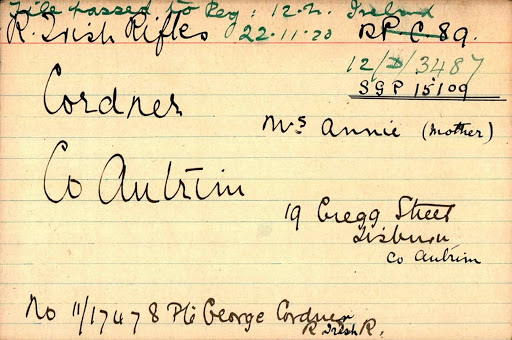 File passed to Reg: 12.2. Ireland
R. Irish Rifles 22.11.20 RP C 89.
12/D/3487
SGP 15109
Cordner
Mrs Annie (Mother)
Co Antrim
19 Gregg Street
Lisburn
Co Antrim
No 11/17478 Pte George Cordner
R. Irish R.